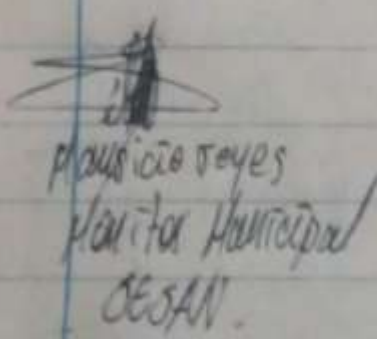 Mauricio reyes
Monitor Municipal
SESAN.